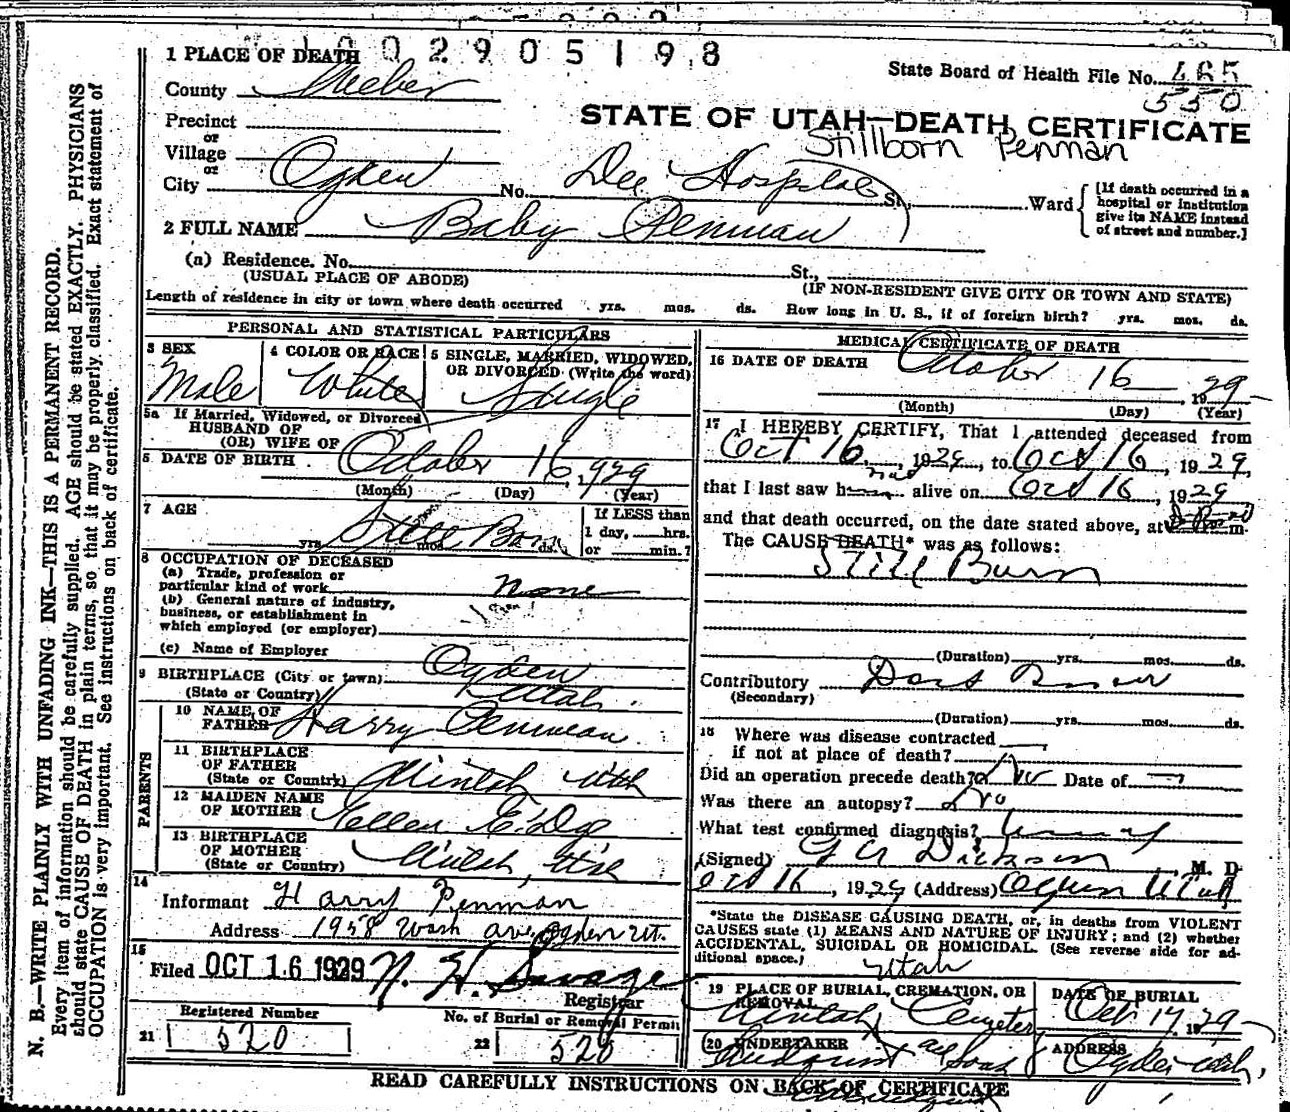 1002905198
1 PLACE OF DEATH
State Board of Health File No. 465
550
County Weber
STATE OF UTAH—DEATH CERTIFICATE
Stillborn Penman
Precinct
or
Village
or
City Ogden No. Dee Hospital St., Ward
[If death occurred in a
hospital or institution
give its NAME instead
of street and number.]
2 FULL NAME Baby Penman
(a) Residence. No. St.,
(USUAL PLACE OF ABODE) (IF NON-RESIDENT GIVE CITY OR TOWN AND STATE)
Length of residence in city or town where death occurred yrs. mos. ds. How long in U. S., if of foreign birth? yrs. mos. ds.
PERSONAL AND STATISTICAL PARTICULARS
3 SEX
Male
4 COLOR OR RACE
White
5 SINGLE, MARRIED, WIDOWED,
OR DIVORCED (Write the word)
Single
5a If Married, Widowed, or Divorced
HUSBAND OF
(OR) WIFE OF
6 DATE OF BIRTH October 16, 1929
(Month) (Day) (Year)
7 AGE
Still Born
yrs. mos. ds.
If LESS than
1 day, hrs.
or min.?
8 OCCUPATION OF DECEASED
(a) Trade, profession or
particular kind of work none
(b) General nature of industry,
business, or establishment in
which employed (or employer)
(c) Name of Employer
9 BIRTHPLACE (City or town) Ogden
(State or Country) Utah
PARENTS
10 NAME OF
FATHER Harry Penman
11 BIRTHPLACE
OF FATHER
(State or Country) Uintah Utah
12 MAIDEN NAME
OF MOTHER Nellen E. Dye
13 BIRTHPLACE
OF MOTHER
(State or Country) Uintah, Utah
14
Informant Harry Penman
Address 1958 Wash ave, Ogden Ut.
15
Filed OCT 16 1929 N. H. Savage
Registrar
Registered Number
21 520
No. of Burial or Removal Permit
22 520
MEDICAL CERTIFICATE OF DEATH
16 DATE OF DEATH October 16 1929
(Month) (Day) (Year)
17 I HEREBY CERTIFY, That I attended deceased from
Oct 16, 1929, to Oct 16, 1929,
that I last saw h alive on Oct 16, 1929
and that death occurred, on the date stated above, at m.
The CAUSE DEATH* was as follows:
Still Burn
(Duration) yrs. mos. ds.
Contributory
(Secondary)
(Duration) yrs. mos. ds.
18 Where was disease contracted
if not at place of death?
Did an operation precede death? No Date of
Was there an autopsy? No
What test confirmed diagnosis?
(Signed) Dickson, M. D.
Oct 16, 1929 (Address) Ogden Utah
*State the DISEASE CAUSING DEATH, or, in deaths from VIOLENT
CAUSES state (1) MEANS AND NATURE OF INJURY; and (2) whether
ACCIDENTAL, SUICIDAL OR HOMICIDAL. (See reverse side for ad-
ditional space.)
Utah
19 PLACE OF BURIAL, CREMATION, OR
REMOVAL
Uintah Cemetery
DATE OF BURIAL
Oct 17, 1929
20 UNDERTAKER
Lindquist and Sons
ADDRESS
Ogden
READ CAREFULLY INSTRUCTIONS ON BACK OF CERTIFICATE
N. B.—WRITE PLAINLY WITH UNFADING INK—THIS IS A PERMANENT RECORD.
Every item of information should be carefully supplied. AGE should be stated EXACTLY. PHYSICIANS
should state CAUSE OF DEATH in plain terms, so that it may be properly classified. Exact statement of
OCCUPATION is very important. See instructions on back of certificate.